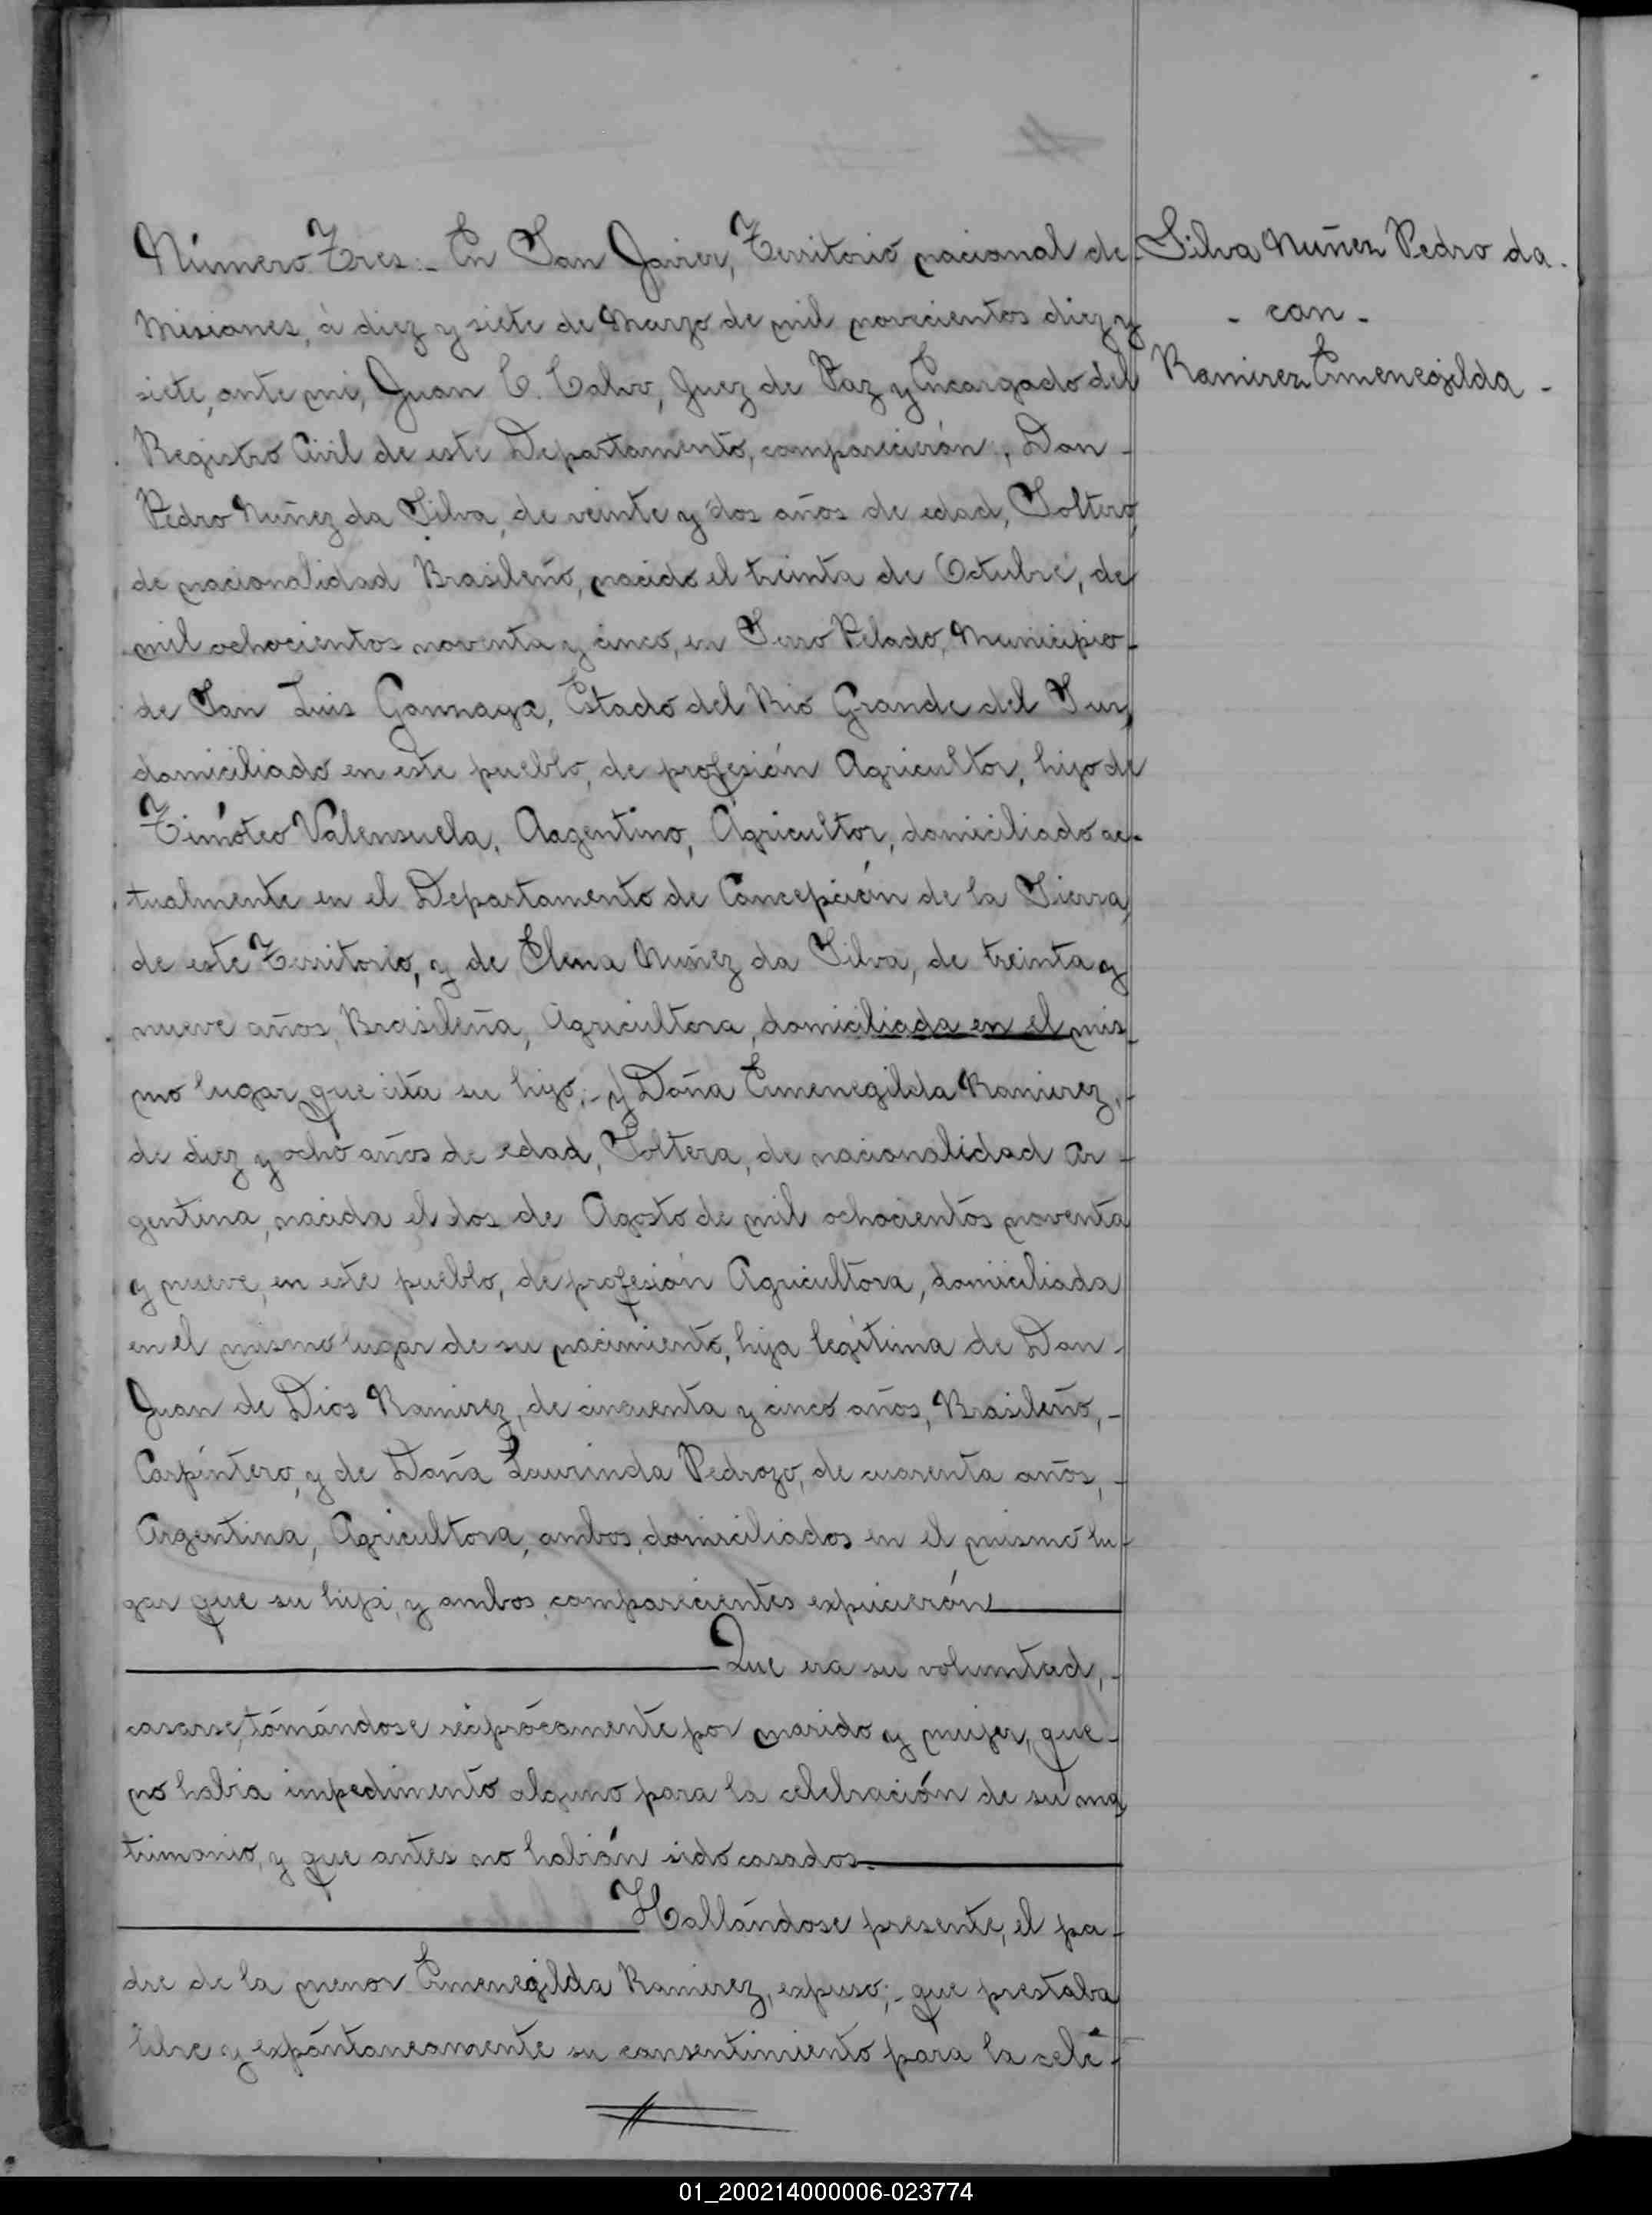 Número Tres:- En San Javier, Territorio nacional de
Misiones, á diez y siete de Marzo de mil novecientos diez y
siete, ante mi, Juan C. Calvo, Juez de Paz y Encargado del
Registro Civil de este Departamento, comparecierón, Don -
Pedro Nuñez da Silva, de veinte y dos años de edad, Soltero,
de nacionalidad Brasileño, nacido el treinta de Octubre, de
mil ochocientos noventa y cinco, en Serro Pelado, Municipio -
de San Luis Gonzaga, Estado del Rio Grande del Sur,
domiciliado en este pueblo, de profesión Agricultor, hijo de
Timóteo Valensuela, Argentino, Agricultor, domiciliado ac-
tualmente en el Departamento de Concepción de la Sierra,
de este Territorio, y de Elena Nuñez da Silva, de treinta y
nueve años, Brasileña, Agricultora, domiciliada en el mis-
mo lugar que cita su hijo;- y Doña Ermenegilda Ramirez, -
de diez y ocho años de edad, Soltera, de nacionalidad Ar-
gentina, nacida el dos de Agosto de mil ochocientos noventa
y nueve, en este pueblo, de profesión Agricultora, domiciliada
en el mismo lugar de su nacimiento, hija legítima de Don -
Juan de Dios Ramirez, de cincuenta y cinco años, Brasileño, -
Carpíntero, y de Doña Laurinda Pedrozo, de cuarenta años, -
Argentina, Agricultora, ambos domiciliados en el mismo lu-
gar que su hija, y ambos comparecientes expucierón
Que era su voluntad, -
casarse, tómándose recíprócamente por marido y mujer, que -
no habia impedimento alguno para la celebración de su ma
trimonio, y que antes no habián sido casados.
Hallándose presente, el pa-
dre de la menor Ermenegilda Ramirez, expuso;- que prestaba
libre y expóntaneamente su consentimiento para la cele-
Silva Nuñez Pedro da.
- con -
Ramirez Ermenegilda -
01_200214000006-023774